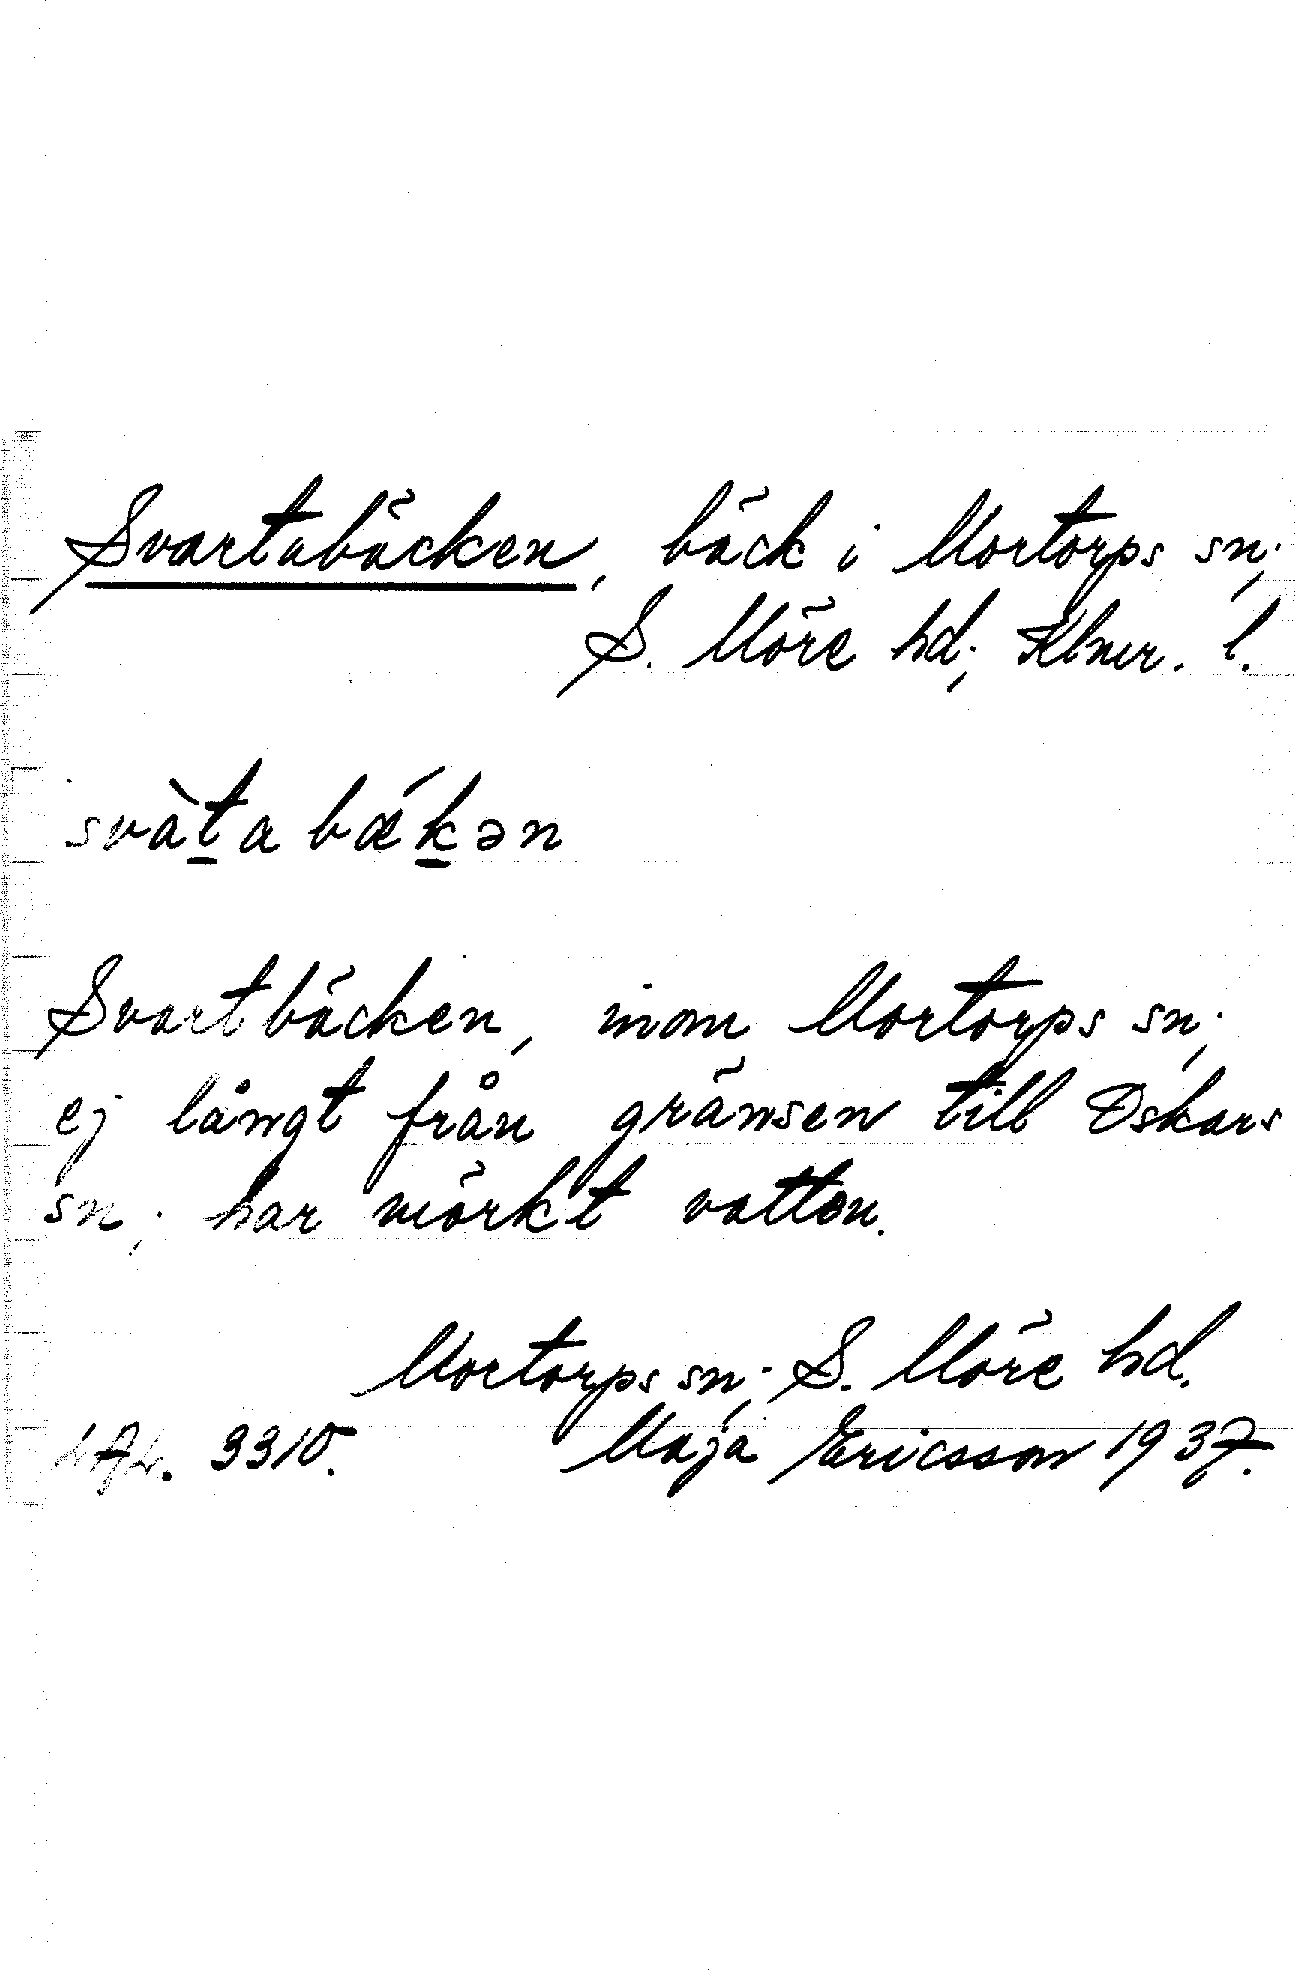 Svartabäcken, bäck i Mortorps sn;
S. Möre hd; Klmr. l.
svàt̲a bǽk̲ən
Svartbäcken, inom Mortorps sn;
ej långt från gränsen till Oskars
sn; har mörkt vatten.
Mortorps sn; S. Möre hd.
3310. Maja Ericsson 1937.